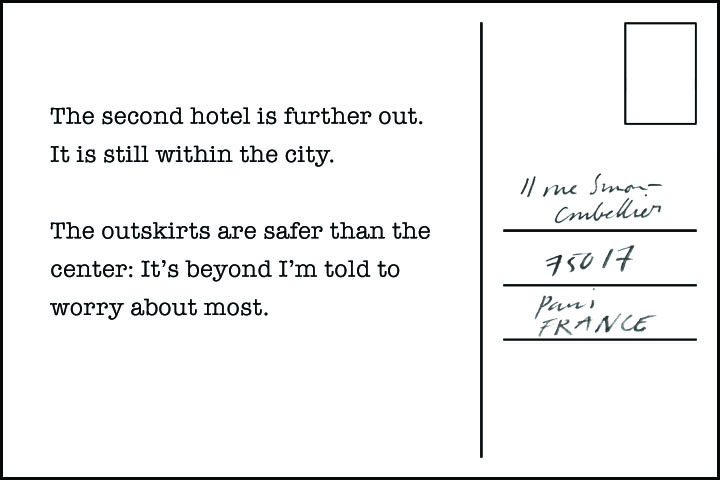 The second hotel is further out.
It is still within the city.
The outskirts are safer than the
center: It's beyond I'm told to
worry about most.
11 rue
75017
Paris
FRANCE